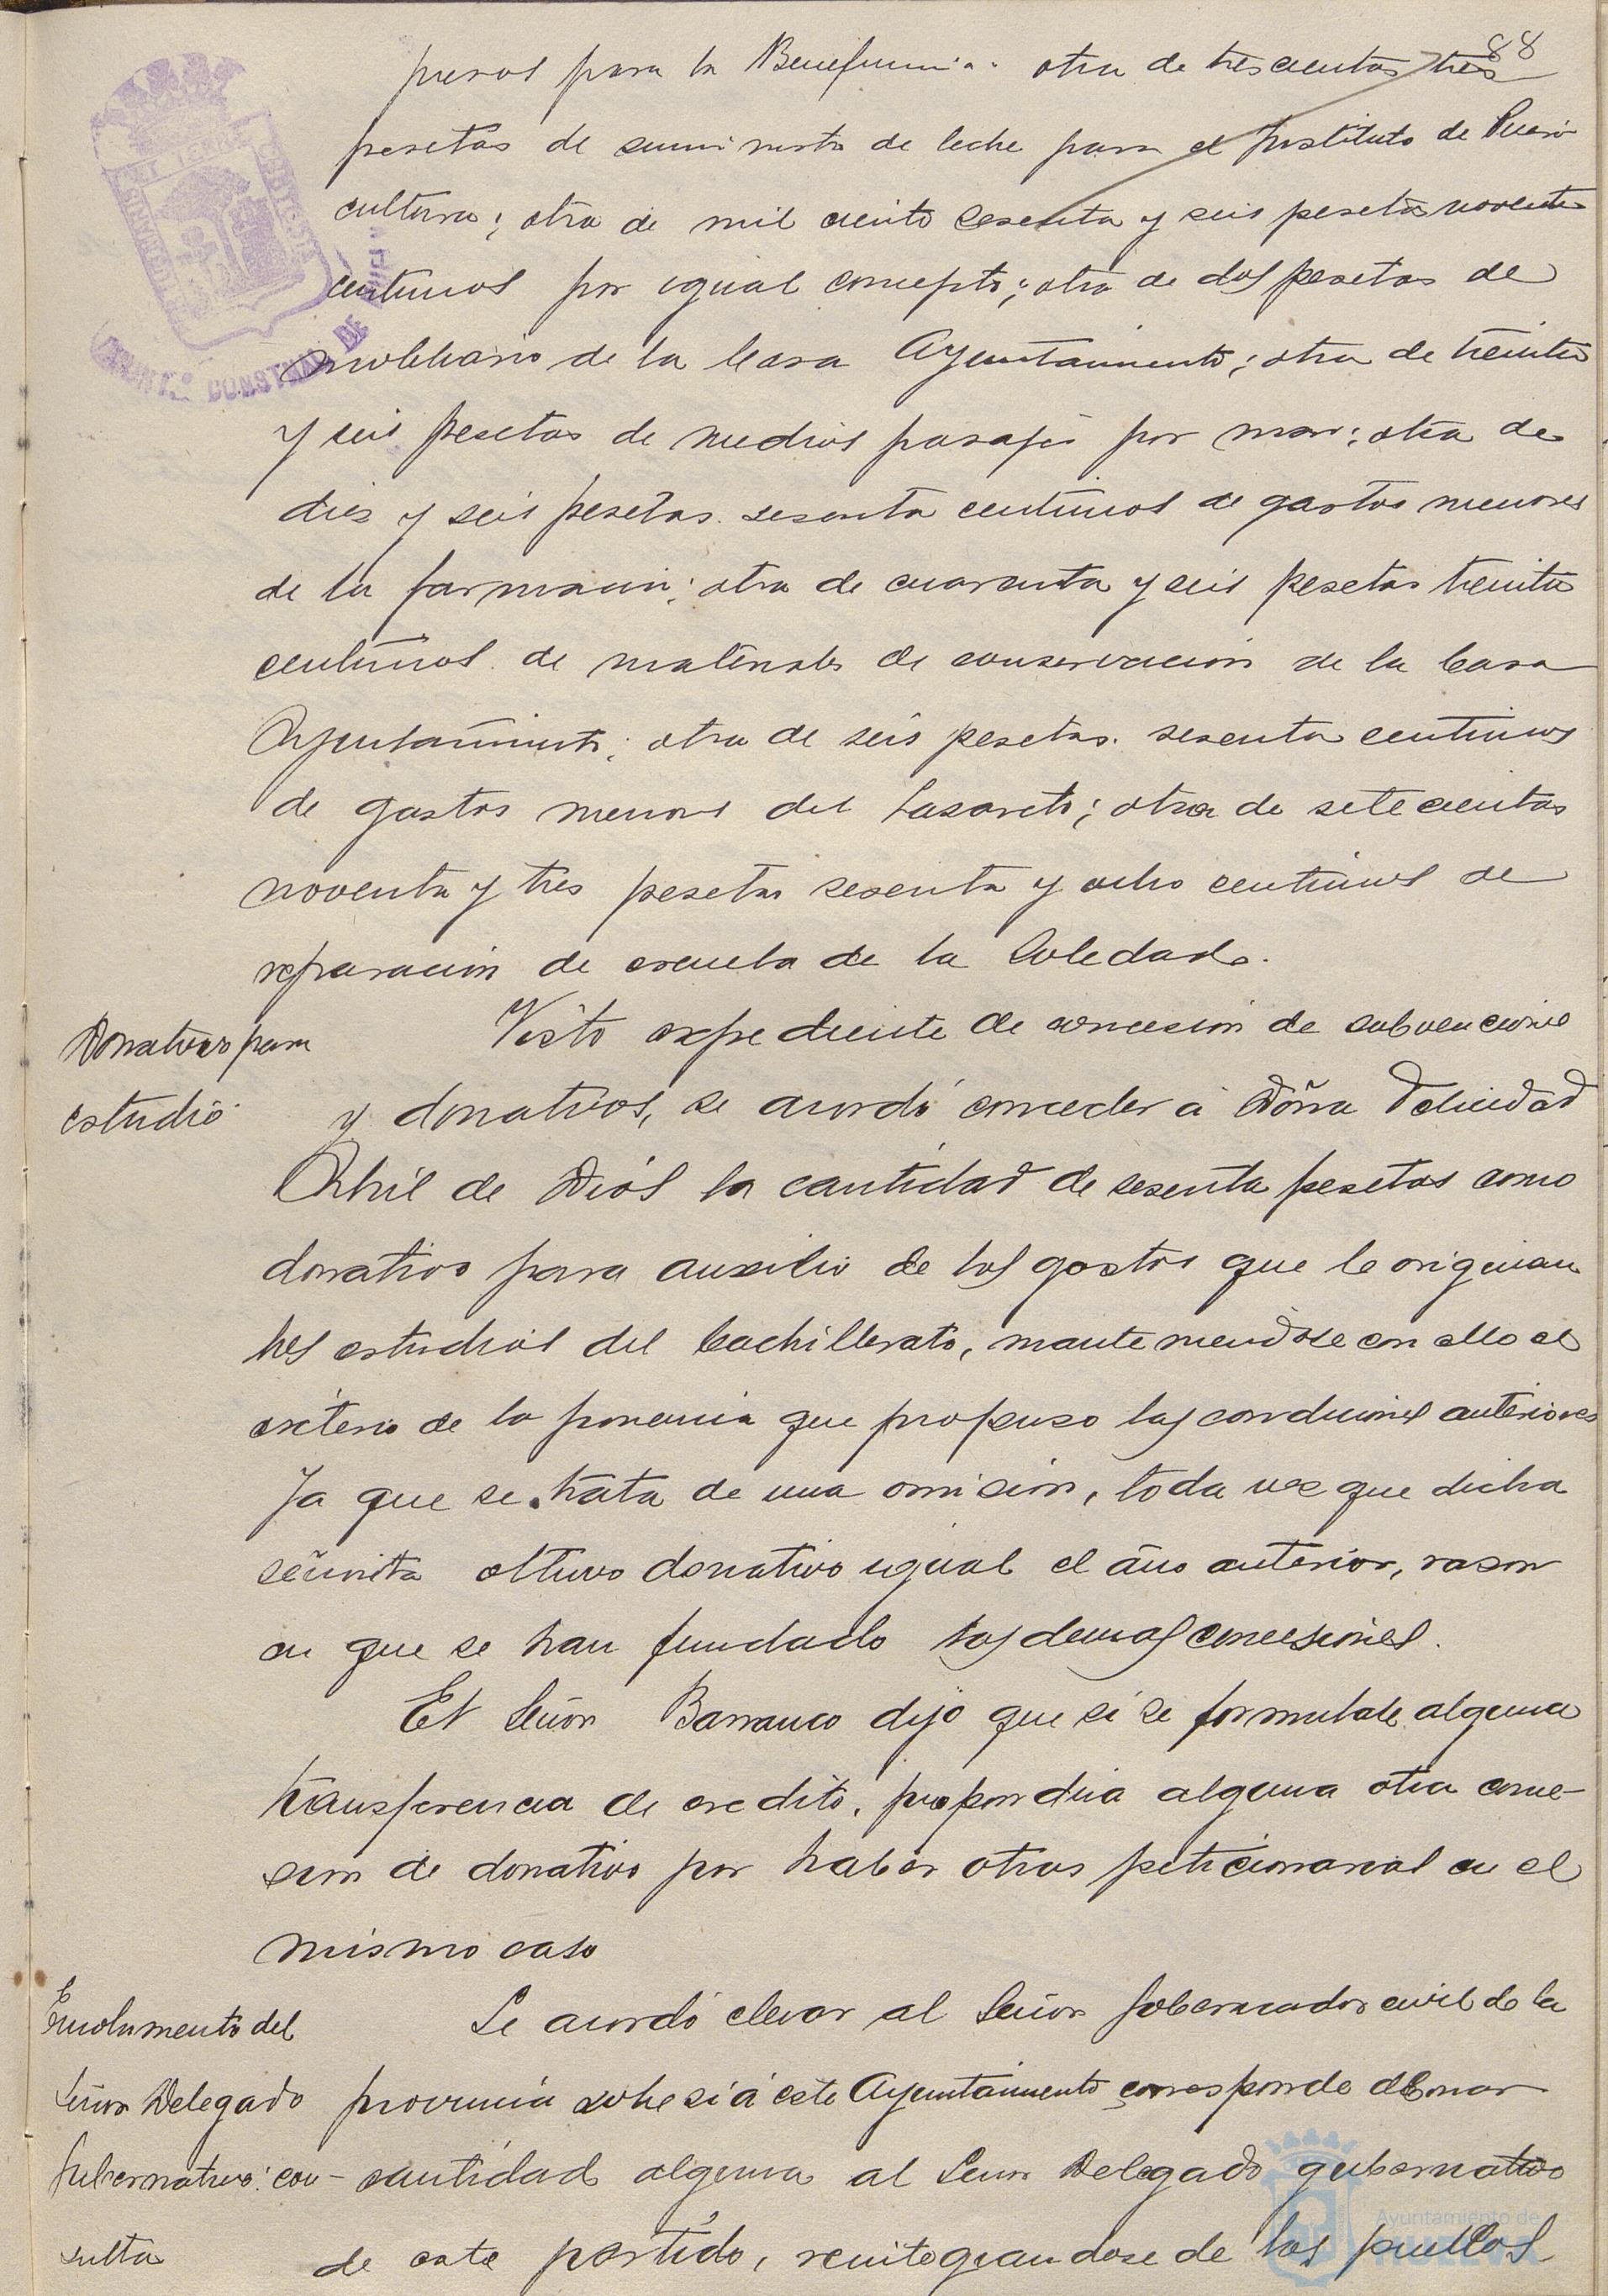 88
presos para la Beneficencia. otra de trescientas tres
pesetas de suministro de leche para el Instituto de Pueri-
cultura; otra de mil ciento sesenta y seis pesetas noventa
centimos por igual concepto; otra de dos pesetas de
mobiliario de la Casa Ayuntamiento; otra de treinta
y seis pesetas de medios pasajes por mar; otra de
diez y seis pesetas sesenta centimos de gastos menores
de la farmacia; otra de cuarenta y seis pesetas treinta
centimos de materiales de conservacion de la Casa
Ayuntamiento; otra de seis pesetas sesenta centimos
de gastos menores del Lazareto; otra de setecientas
noventa y tres pesetas sesenta y ocho centimos de
reparacion de escuela de la Soledad.
Donativo para
estudio
Visto expediente de concesion de subvenciones
y donativos, se acordó conceder á Doña Felicidad
Abril de Dios la cantidad de sesenta pesetas como
donativo para auxilio de los gastos que le originan
los estudios del bachillerato, manteniendose con ello el
criterio de la ponencia que propuso las condiciones anteriores
ya que se trata de una omision, toda vez que dicha
señorita obtuvo donativo igual el año anterior, razon
en que se han fundado las demas concesiones.
El Señor Barranco dijo que si se formulase alguna
transferencia de credito, propondria alguna otra conce-
sion de donativo por haber otros peticionarios en el
mismo caso
Emolumento del
Señor Delegado
Gubernativo: con-
sulta
Se acordó elevar al Señor Gobernador civil de la
provincia sobre si á este Ayuntamiento corresponde abonar
cantidad alguna al Señor Delegado gubernativo
de este partido, reintegrandose de los pueblos
Ayuntamiento de
HUELVA